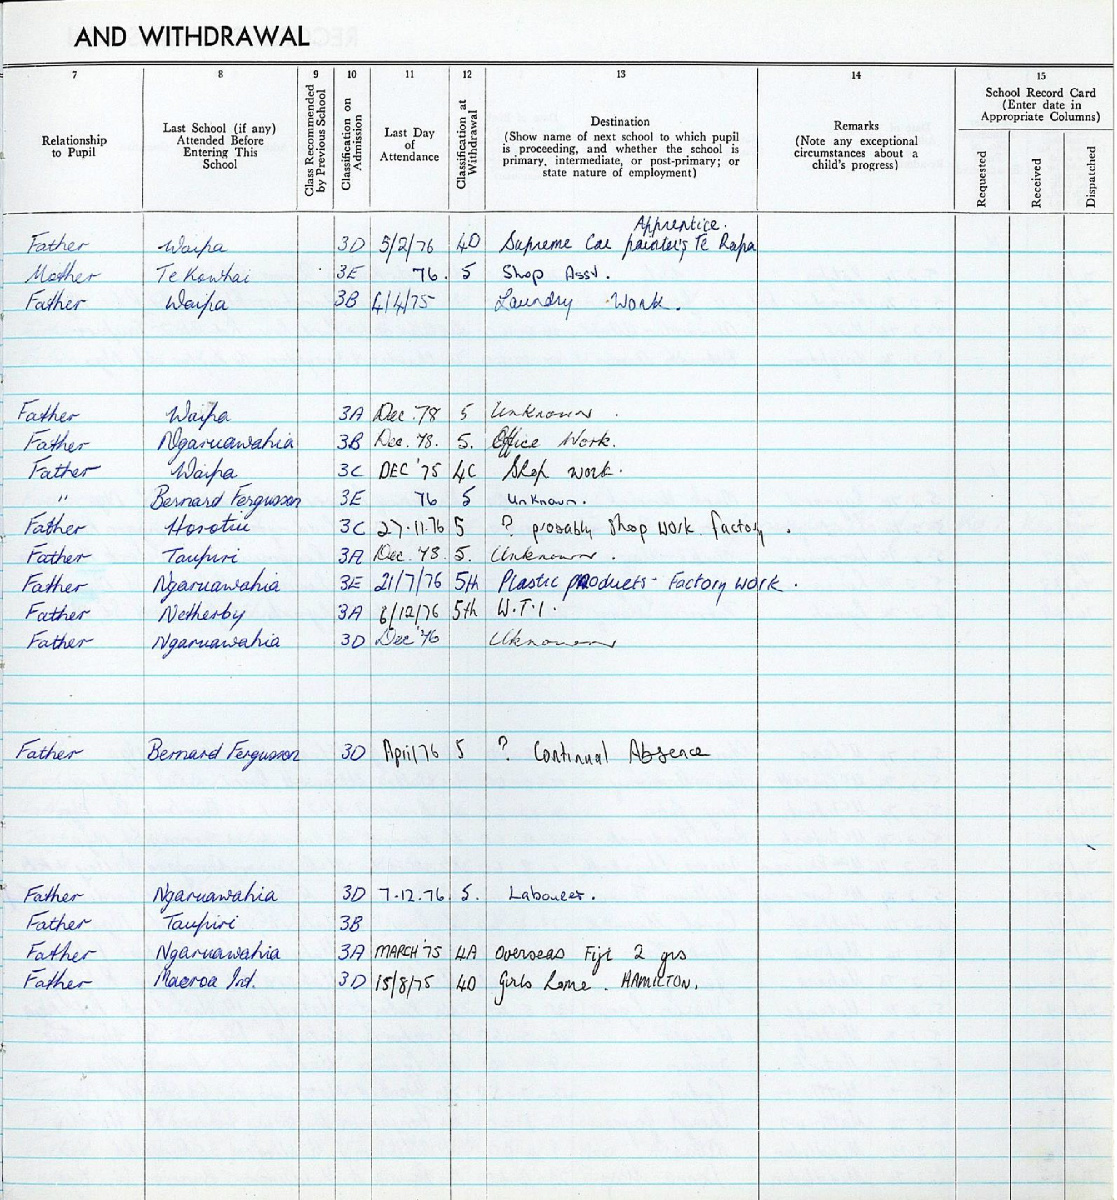 AND WITHDRAWAL
7 8 9 10 11 12 13 14 15
Relationship to Pupil
Last School (if any) Attended Before Entering This School
Class Recommended by Previous School
Classification on Admission
Last Day of Attendance
Classification at Withdrawal
Destination
(Show name of next school to which pupil is proceeding, and whether the school is primary, intermediate, or post-primary; or state nature of employment)
Remarks
(Note any exceptional circumstances about a child's progress)
School Record Card
(Enter date in Appropriate Columns)
Requested
Received
Dispatched
Apprentice.
Father Waipa 3D 5/2/76 4D Supreme Car painters Te Rapa
Mother Te Kowhai 3E 76. 5 Shop Asst.
Father Waipa 3B 4/4/75 Laundry Work.
Father Waipa 3A Dec. '78 5 Unknown.
Father Ngaruawahia 3B Dec. 78. 5. Office Work.
Father Waipa 3C DEC '75 4C Shop work.
" Bernard Fergusson 3E 76 5 unknown.
Father Horotiu 3C 27.11.76 5 ? probably Shop work factory.
Father Taupiri 3A Dec. 78. 5. Unknown.
Father Ngaruawahia 3E 21/7/76 5th Plastic products - Factory work.
Father Netherby 3A 8/12/76 5th W.T.I.
Father Ngaruawahia 3D Dec '76 Uknown
Father Bernard Fergusson 3D April 76 5 ? Continual Absence
Father Ngaruawahia 3D 7.12.76. 5. Labourer.
Father Taupiri 3B
Father Ngaruawahia 3A MARCH '75 4A Overseas Fiji 2 yrs
Father Maeroa Int. 3D 15/8/75 4D Girls home. HAMILTON.